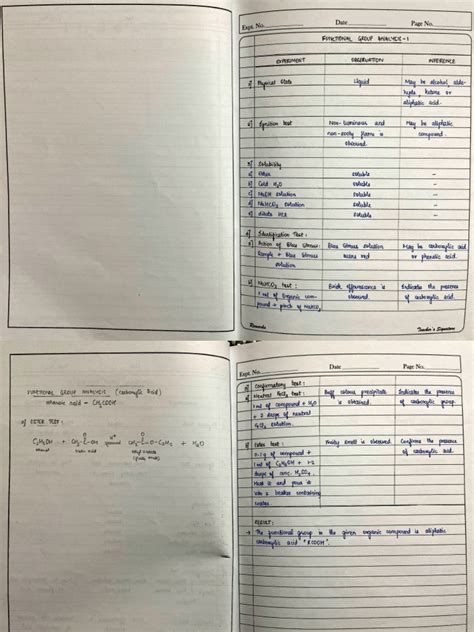 Expt. No.
Date
Page No.
FUNCTIONAL GROUP ANALYSIS - 1
EXPERIMENT OBSERVATION INFERENCE
Physical State Liquid May be alcohol, alde-
hyde, ketone or
aliphatic acid.
Ignition test Non-luminous and May be aliphatic
non-sooty flame is compound.
observed.
Solubility
Ether soluble -
Cold H2O soluble -
NaOH solution soluble -
NaHCO3 solution soluble -
dilute HCl soluble -
Identification Test :
Action of Blue litmus: Blue litmus solution May be carboxylic acid
Sample + Blue litmus turns red or phenolic acid.
solution
NaHCO3 test : Brisk effervescence is Indicates the presence
1 ml of Organic com- observed. of carboxylic acid.
pound + pinch of NaHCO3
Remarks
Teacher's Signature
FUNCTIONAL GROUP ANALYSIS (carboxylic acid)
ethanoic acid - CH3COOH
ESTER TEST :
C2H5OH + CH3-C-OH ⇌ CH3-C-O-C2H5 + H2O
O O H+
Expt. No.
Date
Page No.
Confirmatory test :
Neutral FeCl3 test : Buff colour precipitate Indicates the presence
1 ml of compound + H2O is obtained. of carboxylic group.
+ 2 drops of neutral
FeCl3 solution.
Ester test : Fruity smell is observed. Confirms the presence
0.1 g of compound + of carboxylic acid.
1 ml of C2H5OH + 1-2
drops of conc. H2SO4.
Heat it and pour it
into a beaker containing
water.
RESULT :
→ The functional group in the given organic compound is aliphatic
carboxylic acid "RCOOH".